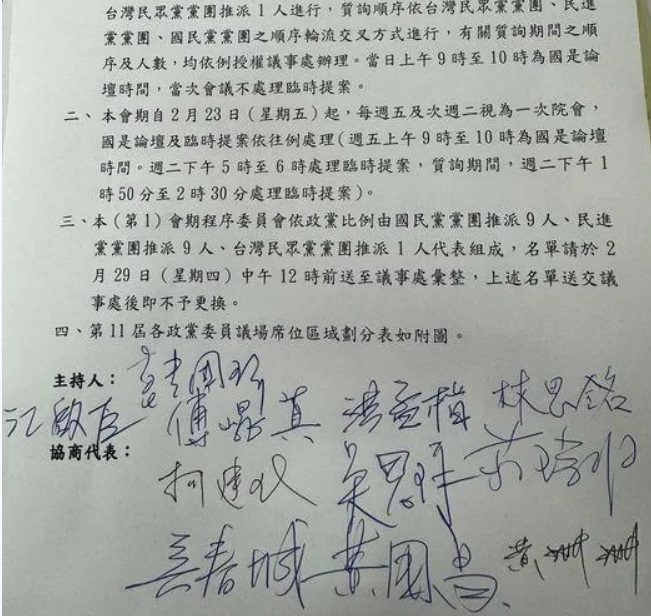 台灣民眾黨黨團推派 1 人進行，質詢順序依台灣民眾黨黨團、民進
黨黨團、國民黨黨團之順序輪流交叉方式進行，有關質詢期間之順
序及人數，均依例授權議事處辦理。當日上午 9 時至 10 時為國是論
壇時間，當次會議不處理臨時提案。
二、本會期自 2 月 23 日（星期五）起，每週五及次週二視為一次院會，
國是論壇及臨時提案依往例處理（週五上午 9 時至 10 時為國是論壇
時間。週二下午 5 時至 6 時處理臨時提案，質詢期間，週二下午 1
時 50 分至 2 時 30 分處理臨時提案）。
三、本（第 1）會期程序委員會依政黨比例由國民黨黨團推派 9 人、民進
黨黨團推派 9 人、台灣民眾黨黨團推派 1 人代表組成，名單請於 2
月 29 日（星期四）中午 12 時前送至議事處彙整，上述名單送交議
事處後即不予更換。
四、第 11 屆各政黨委員議場席位區域劃分表如附圖。
主持人：韓國瑜
江啟臣 傅崐萁 洪孟楷 林思銘
協商代表：
柯建銘 吳思瑤 莊瑞雄
吳春城 黃國昌 黃珊珊